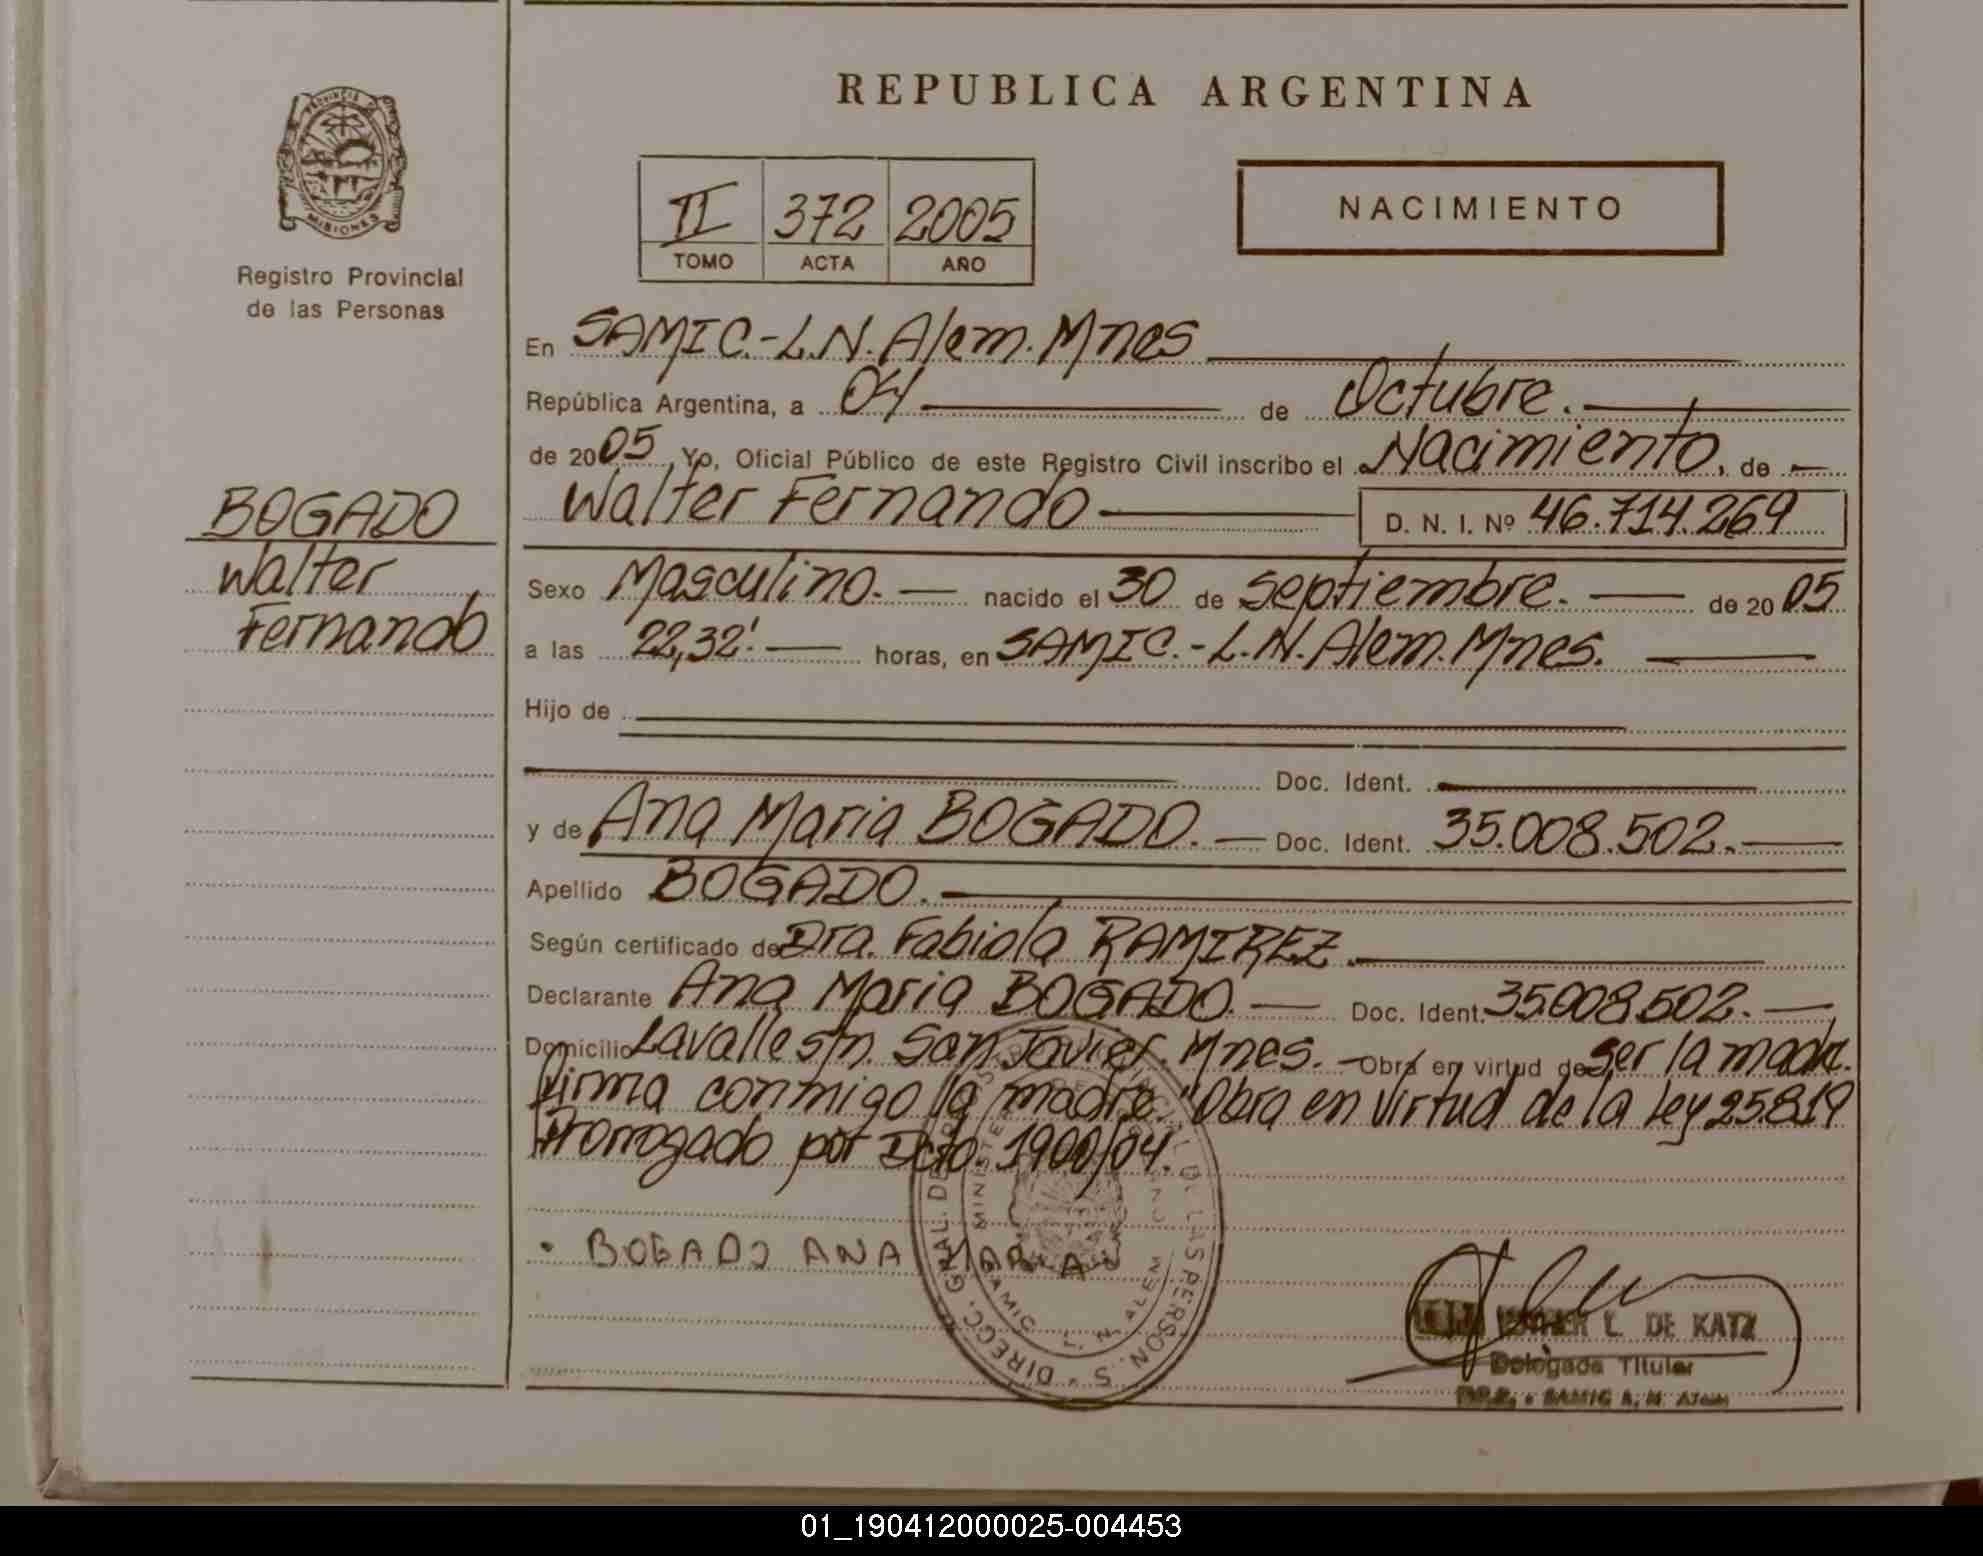 REPUBLICA ARGENTINA
PROVINCIA DE
MISIONES
Registro Provincial
de las Personas
II 372 2005
TOMO ACTA AÑO
NACIMIENTO
En SAMIC.-L.N.Alem.Mnes
República Argentina, a 04 de Octubre.
de 2005, Yo, Oficial Público de este Registro Civil inscribo el Nacimiento, de
Walter Fernando D. N. I. Nº 46.714.269
BOGADO
Walter
Fernando
Sexo Masculino. nacido el 30 de septiembre. de 2005
a las 22,32'. horas, en SAMIC.-L.N.Alem.Mnes.
Hijo de
Doc. Ident.
y de Ana Maria BOGADO. Doc. Ident. 35.008.502.
Apellido BOGADO.
Según certificado de Dra. Fabiola RAMIREZ.
Declarante Ana Maria BOGADO. Doc. Ident. 35.008.502.
Domicilio Lavalle s/n. San Javier. Mnes. Obra en virtud de ser la madre.
firma conmigo la madre. "Obra en virtud de la Ley 25.819
Prorrogado por Dcto. 1900/04.
BOGADO ANA MARIA
DIRECC. GRAL. DE LAS PERSONAS
SAMIC L. N. ALEM
ESTHER L. DE KATZ
Delegada Titular
SAMIC L. N. Alem
01_190412000025-004453